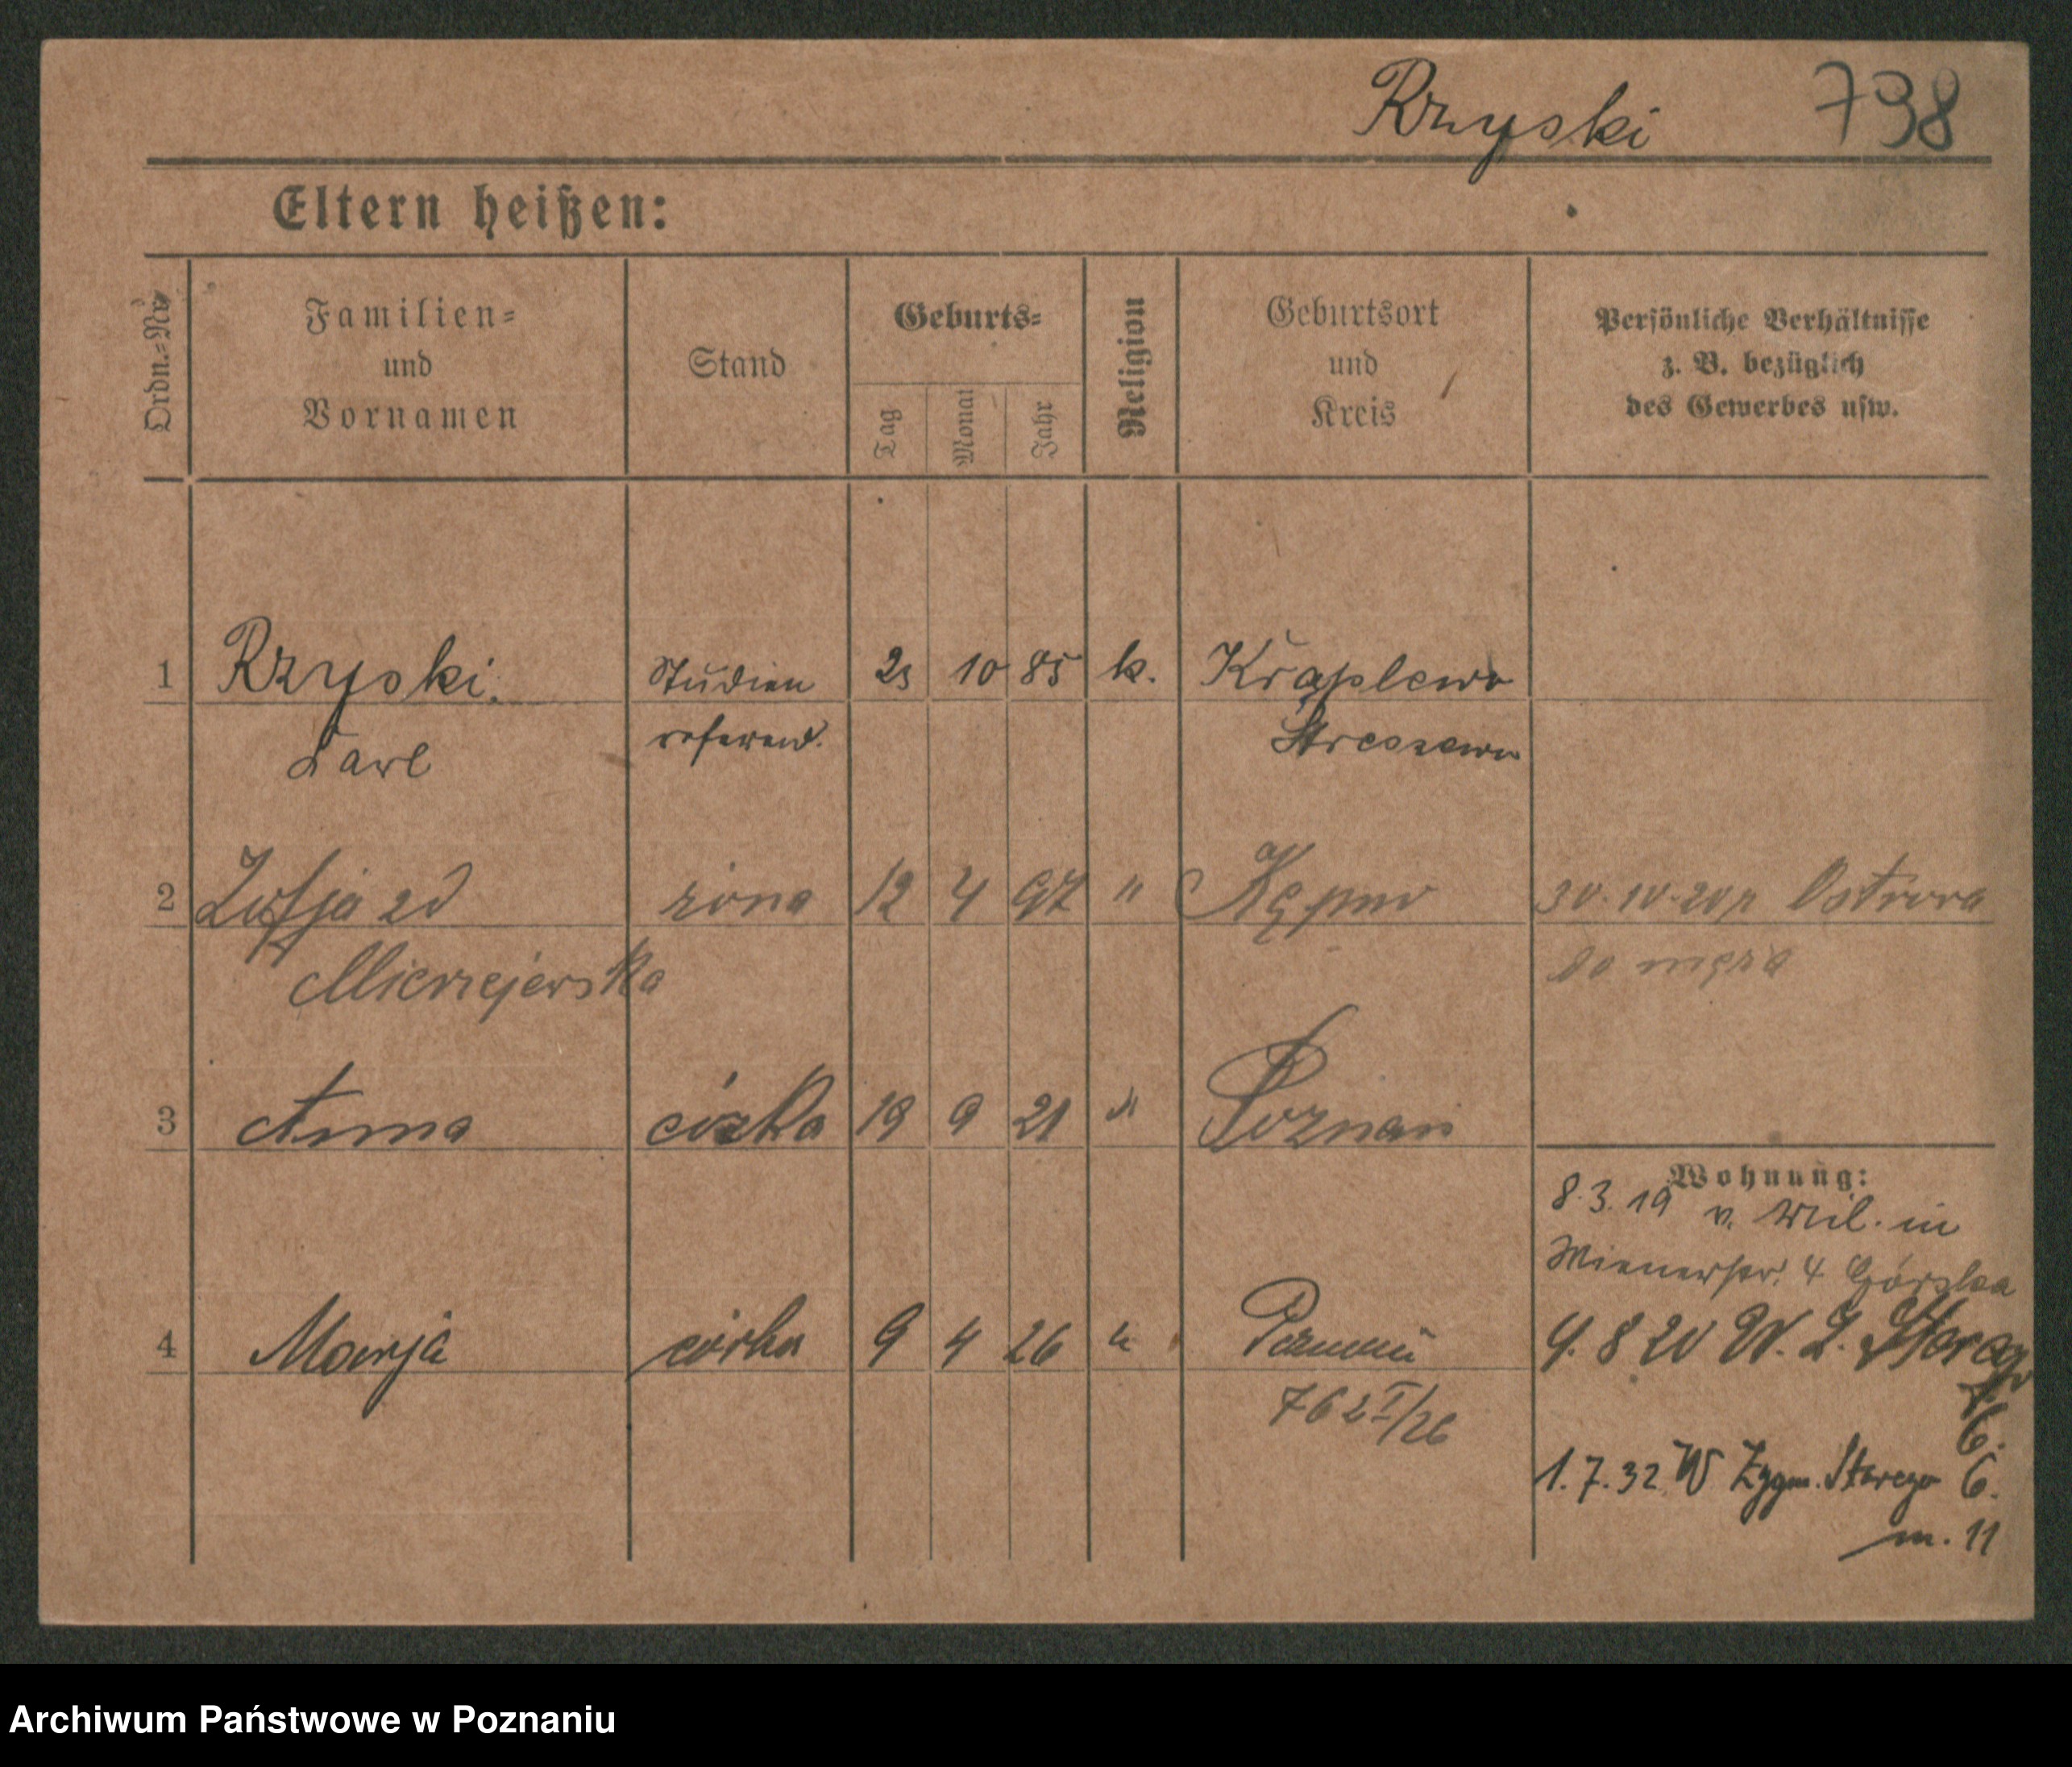 Rzyski 798
Eltern heißen:
Ordn.-Nr.
Familien-
und
Vornamen
Stand
Geburts-
Tag
Monat
Jahr
Religion
Geburtsort
und
Kreis
Persönliche Verhältnisse
z. B. bezüglich
des Gewerbes usw.
1 Rzyski. Studien 10 85 k.
Karl referend.
2 Zofja zd żona 12 4 97 " Kępno 30.10.20 Ostrowa
Mierzejewska do męża
3 Anna córka 19 9 21 " Poznań
Wohnung:
8.3.19 v. Mil. in
Wienerstr. 4 Górska
4 Marja córka 9 4 26 " Poznań 4.8 20 W. Z. Starego
762 I/26
6.
1.7.32 W Zygm. Starego 6.
m. 11
Archiwum Państwowe w Poznaniu